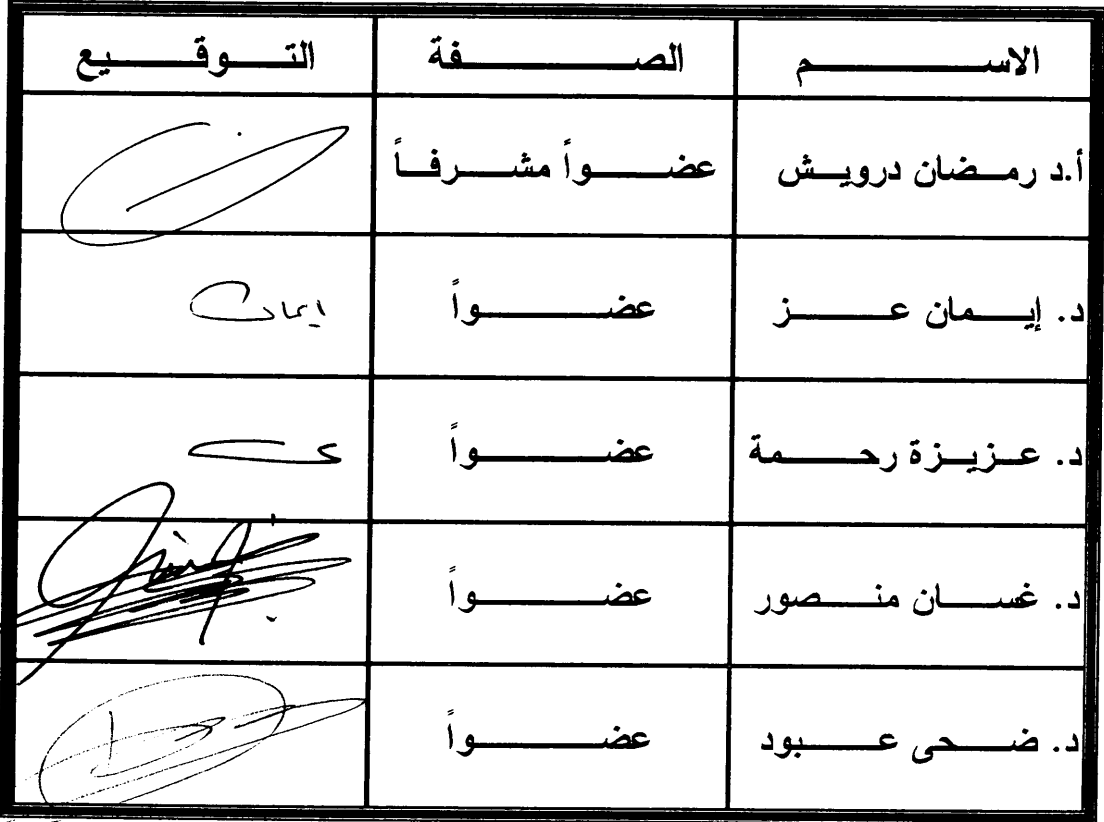 الاسم الصفة التوقيع
أ.د رمضان درويش عضواً مشرفاً
د. إيمان عز عضواً إيمان
د. عزيزة رحمة عضواً
د. غسان منصور عضواً
د. ضحى عبود عضواً